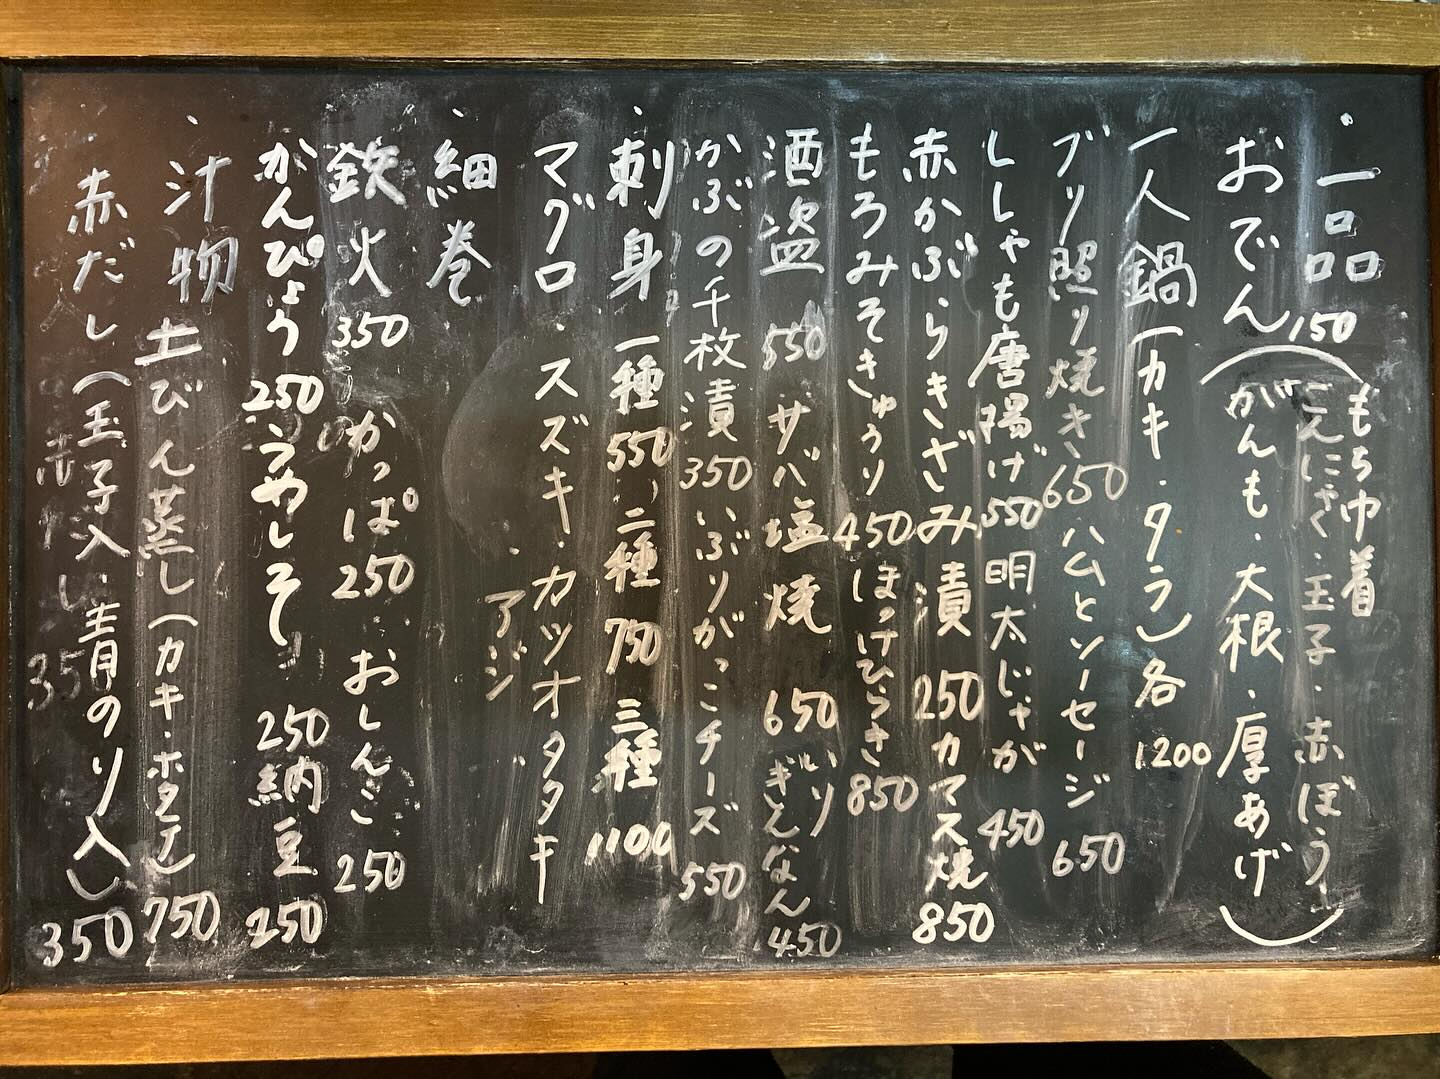 ・一品
おでん 150
(がんも・大根・厚あげ
こんにゃく・玉子・赤ぼう
もち巾着)
一人鍋(カキ・タラ)各1200
ブリ照り焼き650 ハムとソーセージ650
ししゃも唐揚げ550 明太じゃが450
赤かぶらきざみ漬250 カマス焼850
もろみそきゅうり450 ほっけひらき850
酒盗550 サバ塩焼650 いりぎんなん450
かぶの千枚漬350 いぶりがっこチーズ550
・刺身 一種550 二種750 三種1100
マグロ・スズキ・カツオタタキ
・アジ
・細巻
鉄火350 かっぱ250 おしんこ250
かんぴょう250 うめしそ250 納豆250
・汁物 土びん蒸し(カキ・ホタテ)750
赤だし(玉子入・青のり入)350